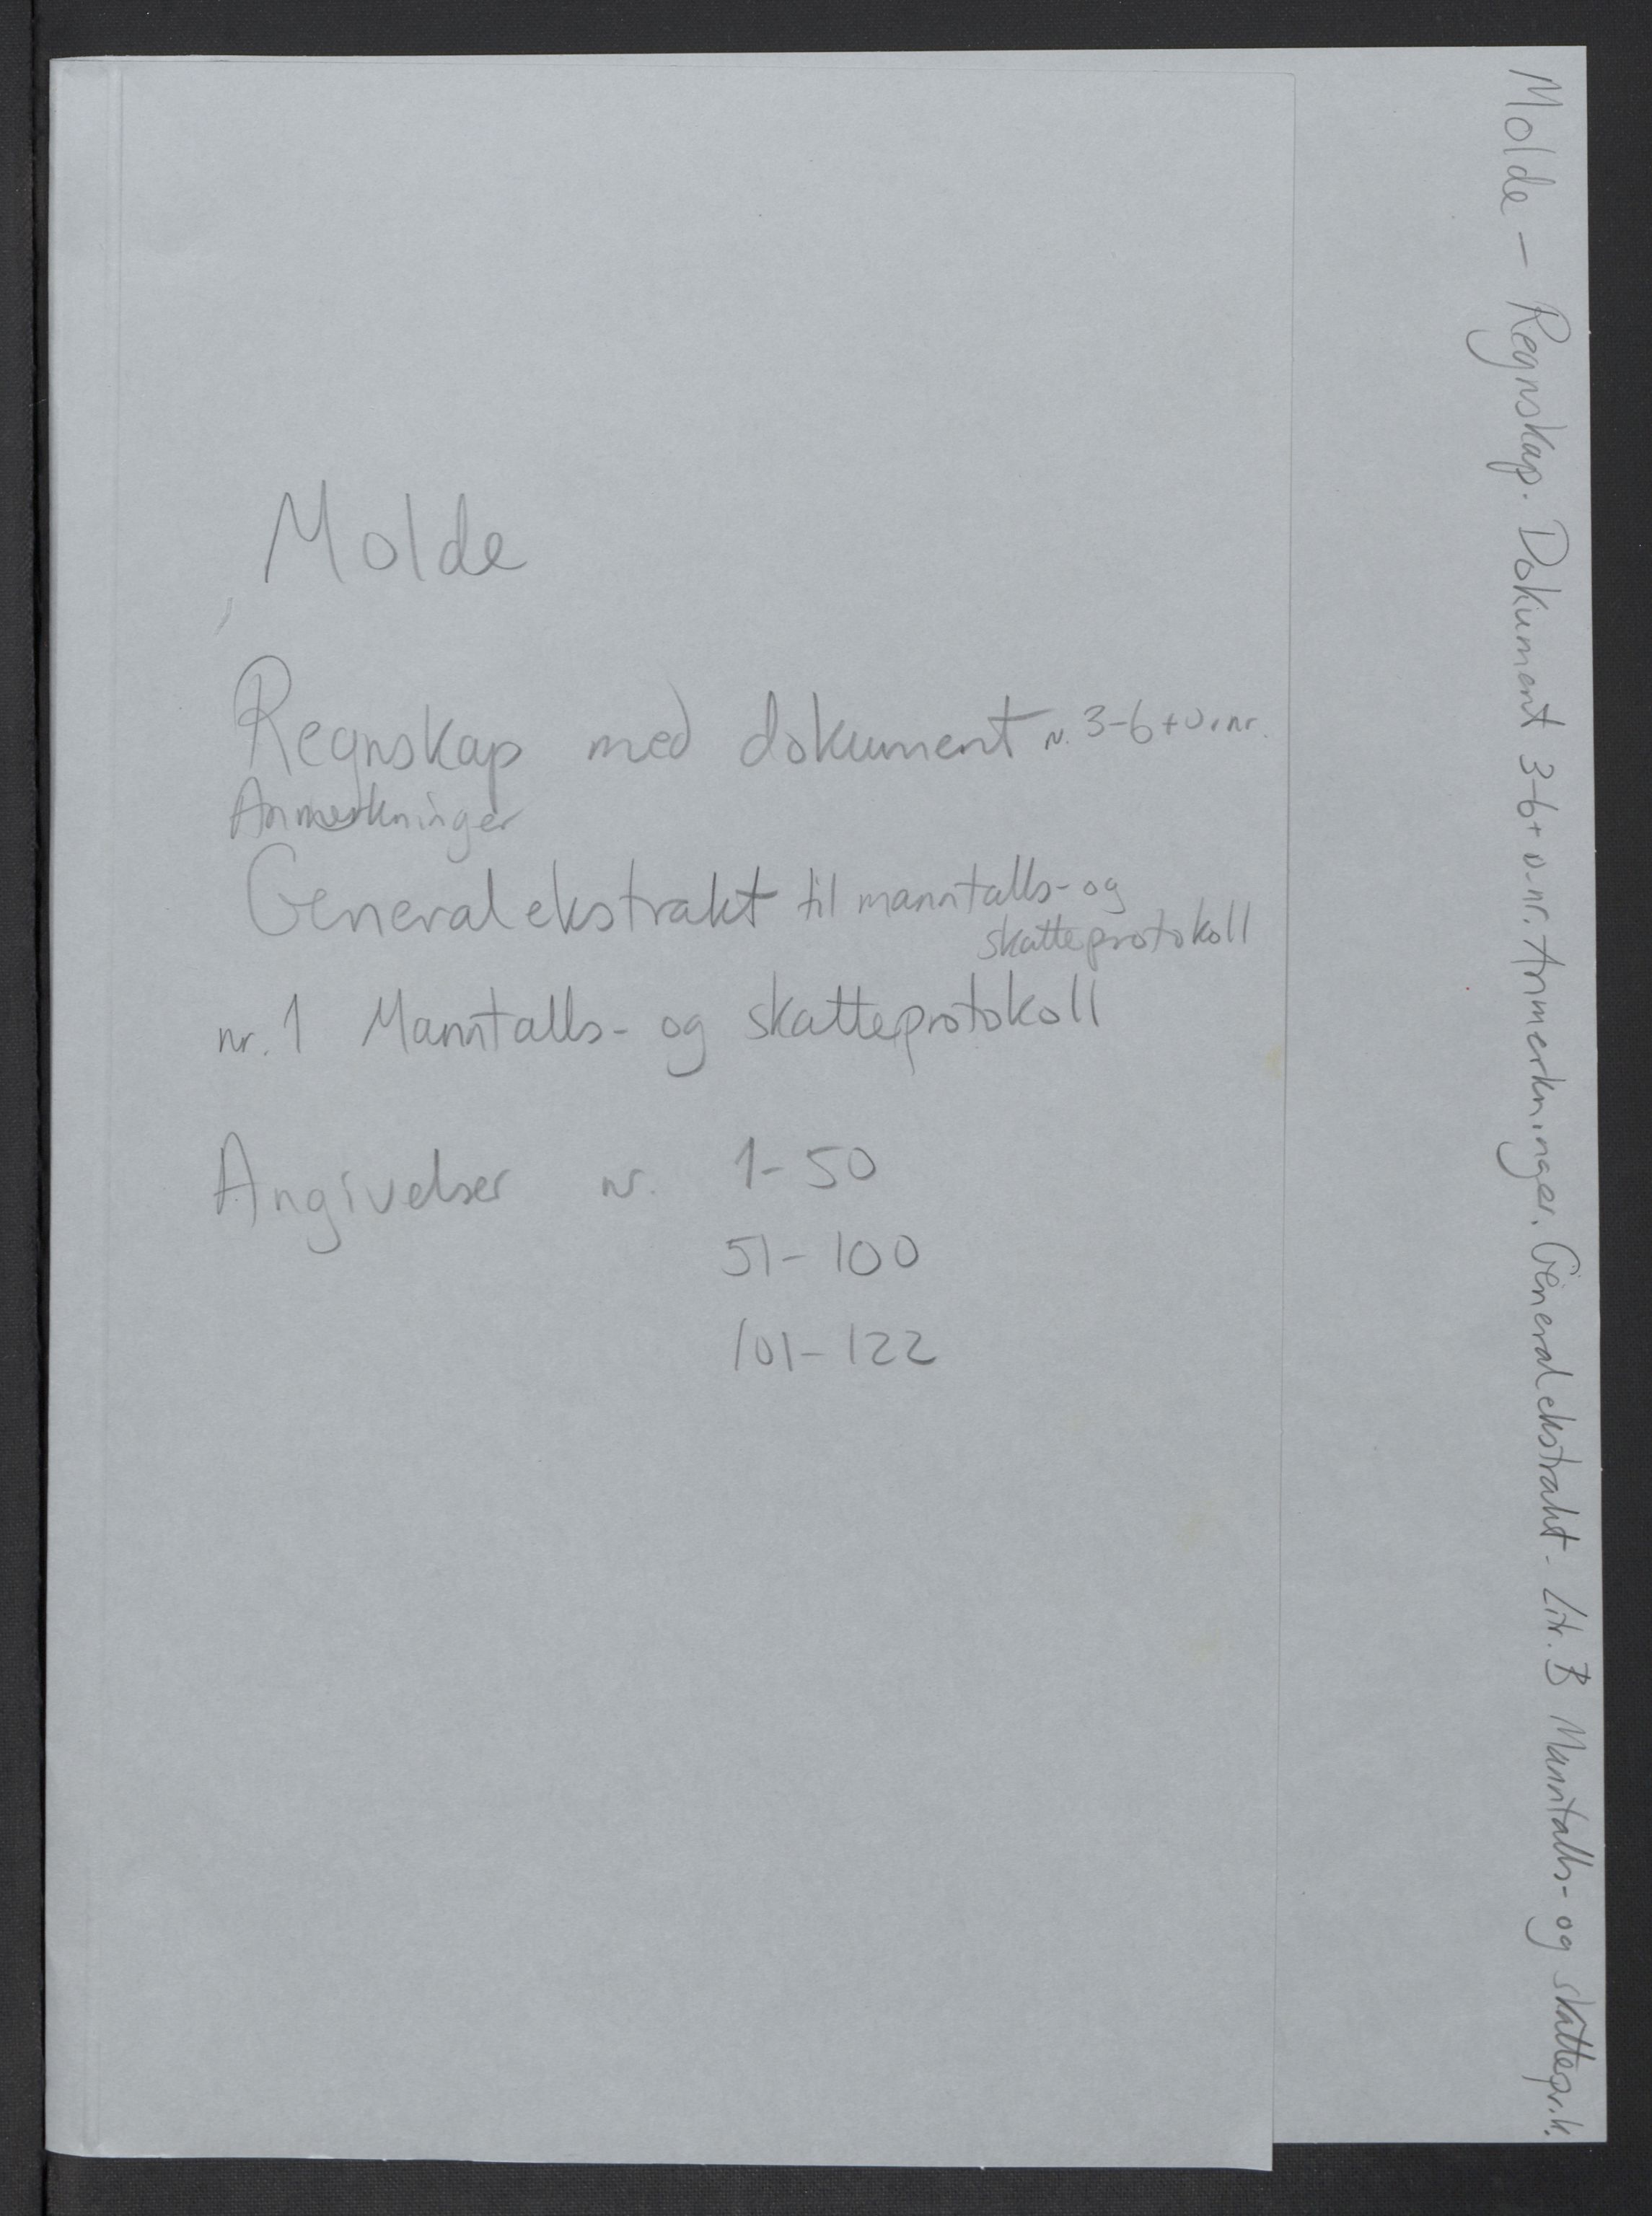 Molde
Regnskap med dokument n. 3-6 + u.nr.
Anmerkninger
Generalekstrakt til manntalls- og
skatteprotokoll
nr. 1 Manntalls- og skatteprotokoll
Angivelser nr. 1-50
51-100
101-122
Molde - Regnskap. Dokument 3-6 + u.nr. Anmerkninger. Generalekstrakt - Litr. B Manntalls- og skattepr.k.